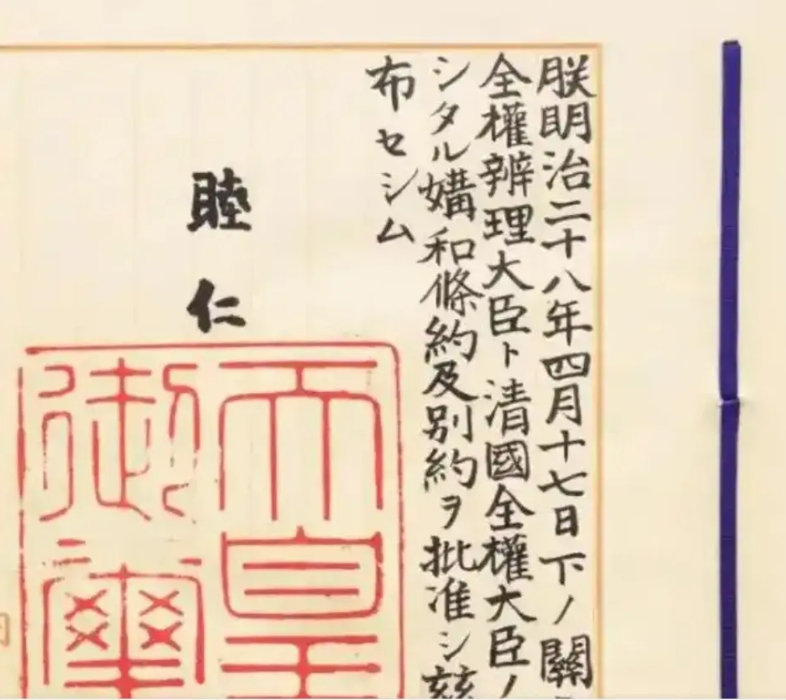 朕明治二十八年四月十七日下ノ關
全權辨理大臣ト清國全權大臣ノ
シタル媾和條約及別約ヲ批准シ茲
布セシム
睦仁
天皇
御璽